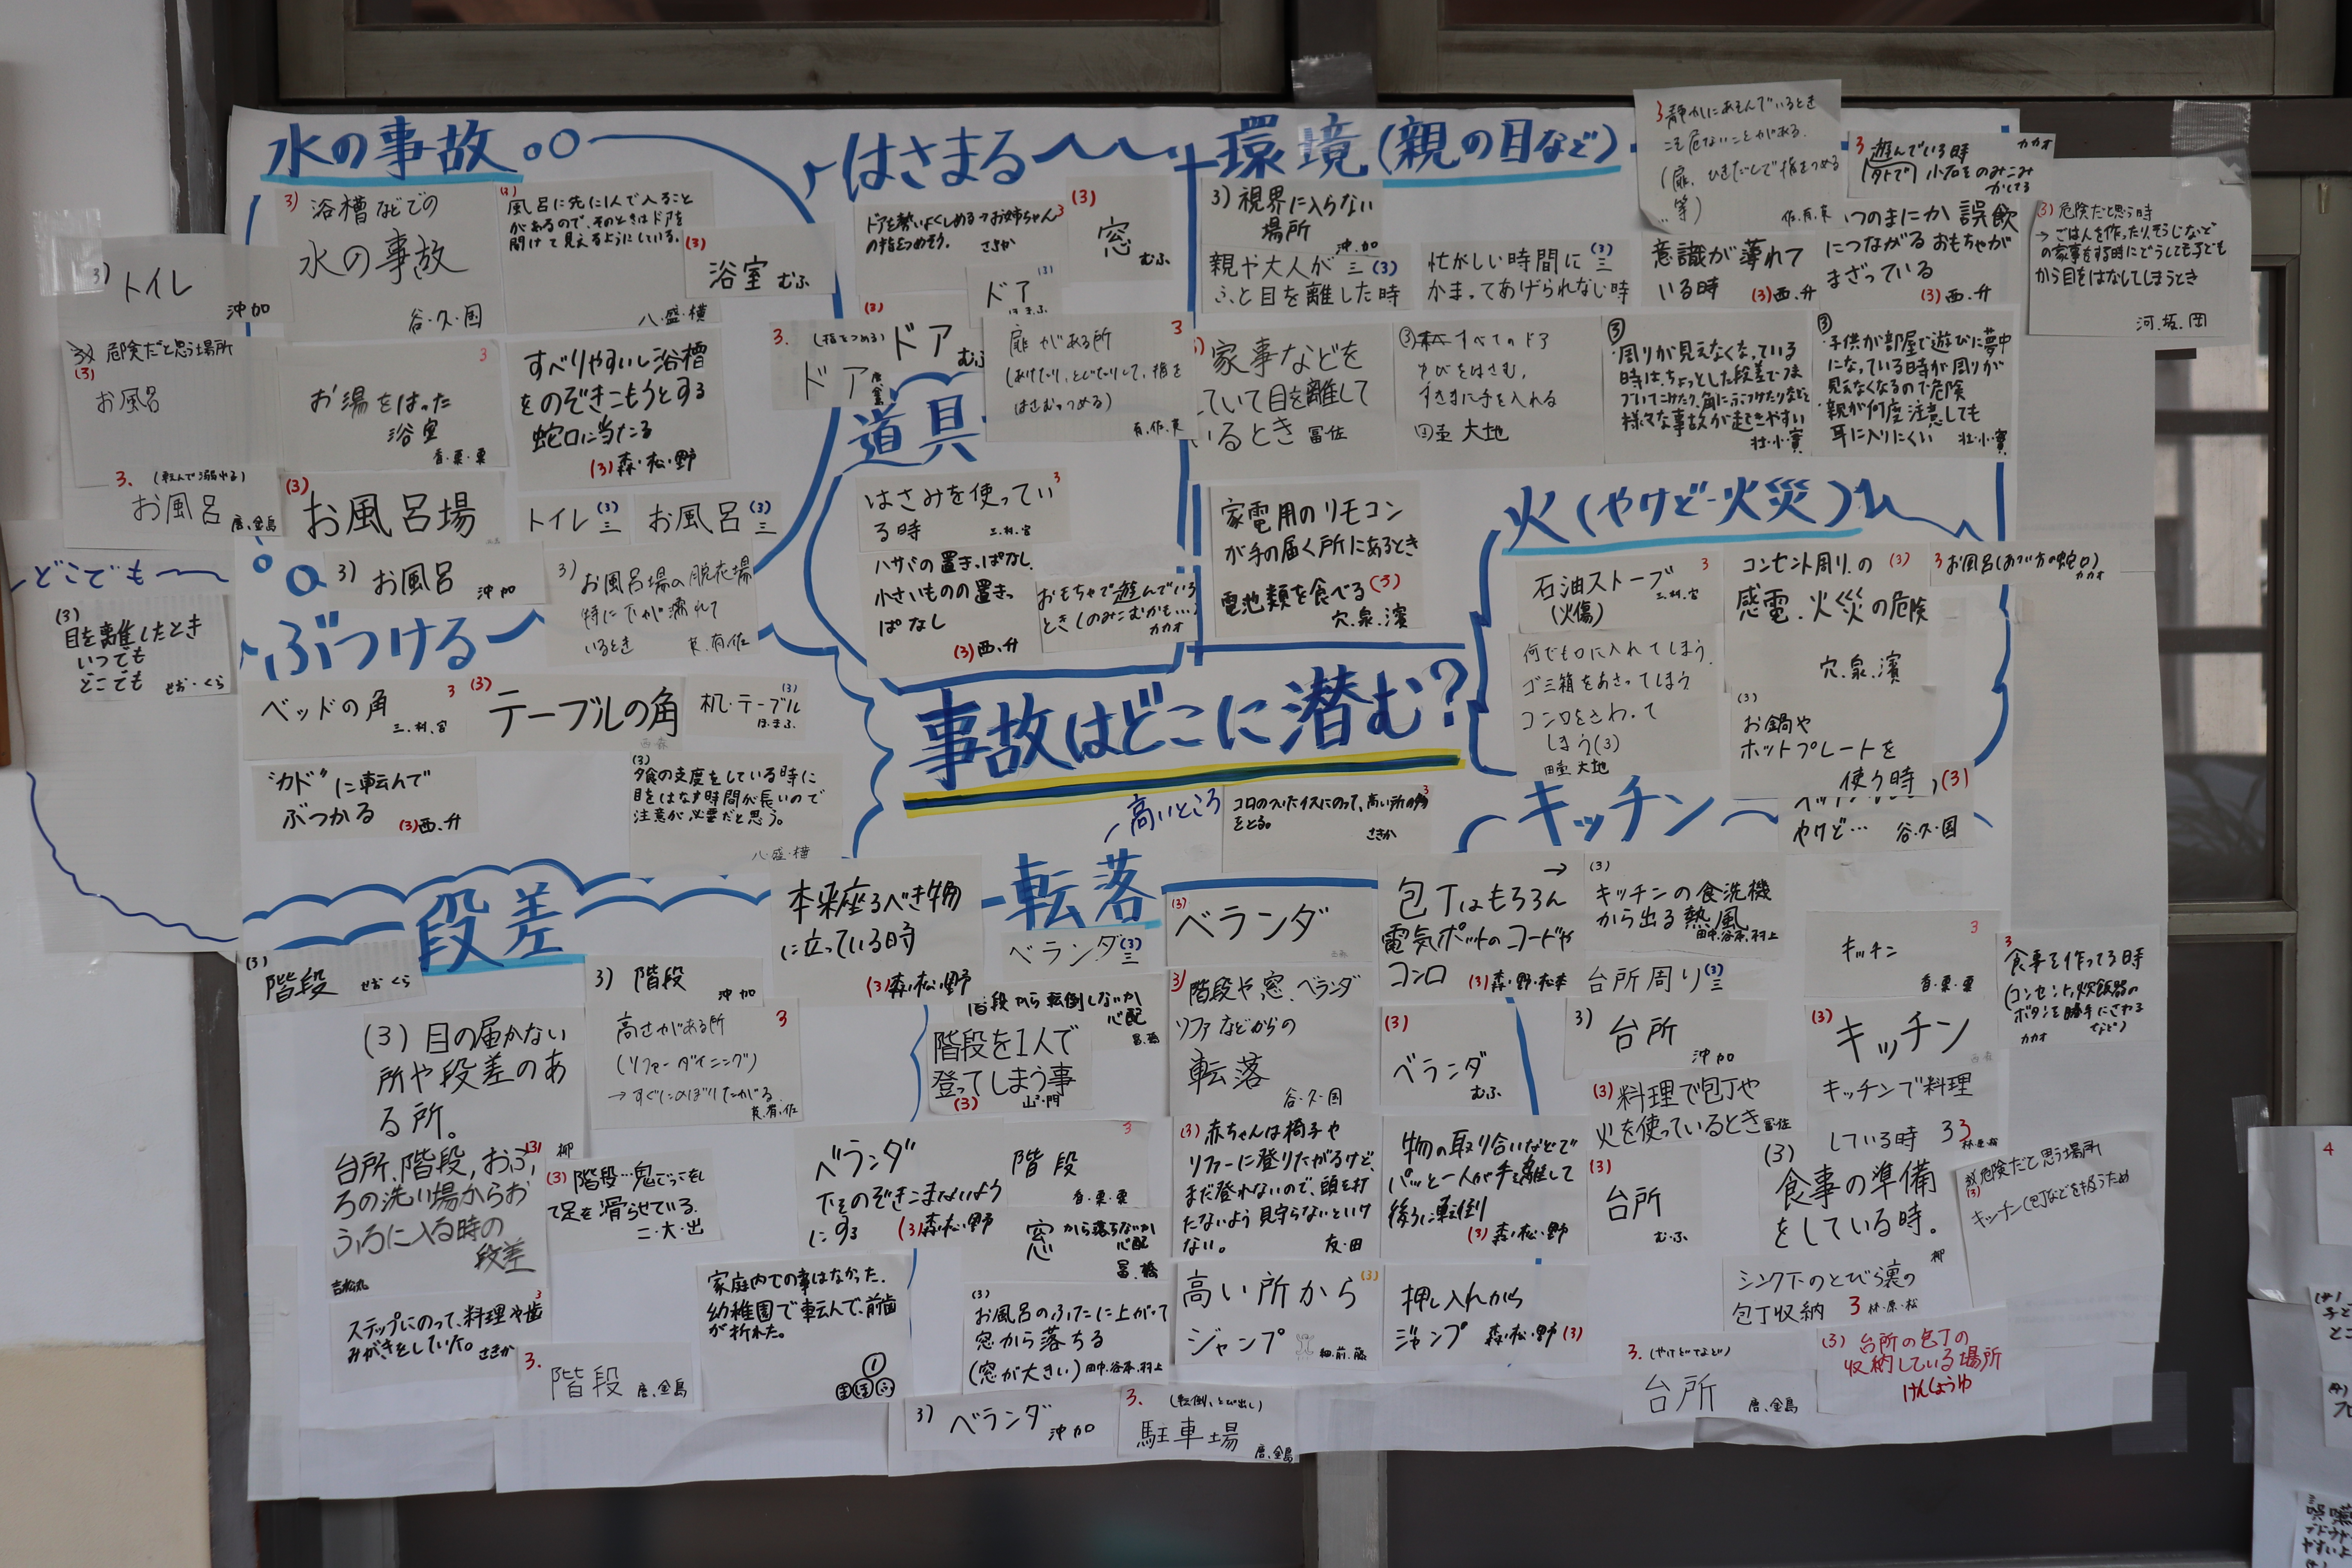 水の事故
3) 浴槽などでの
水の事故
谷・久・国
風呂に先に1人で入ること
があるので、そのときはドアを
開けて見えるようにしている。
八・盛・横
(3)
浴室 むふ
3) トイレ
沖 加
危険だと思う場所
(3)
お風呂
3
お湯をはった
浴室
香・栗・粟
すべりやすい浴槽
をのぞきこもうとする
蛇口に当たる
(3) 森・松・野
3. (転んで溺れる)
お風呂 唐、金島
(3)
お風呂場
トイレ (3) 三
お風呂 (3) 三
3) お風呂 沖 加
3) お風呂場の脱衣場
特に下が濡れて
いるとき
はさまる
ドアを勢いよくしめる→お姉ちゃん 3
の指をつめそう。 さきか
(3)
窓 むふ
(3)
ドア
ほ・ま・ふ
(3)
ドア むふ
3. (指をつめる)
ドア 唐、金島
3
扉がある所
(あけたり、とじたりして、指を
はさむつめる)
有・佐・東
道具
はさみを使ってい 3
る時 三・村・宮
ハサミの置きっぱなし
小さいものの置きっ
ぱなし
(3) 西・升
おもちゃで遊んでいる
とき(のみこむかも…)
カカオ
環境(親の目など)
3) 視界に入らない
場所
沖・加
親や大人が 三 (3)
ふと目を離した時
忙がしい時間に (3) 三
かまってあげられない時
3 静かにあそんでいるとき
こそ危ないことがある。
(扉、ひきだしで指をつめる
…等)
佐・有・東
意識が薄れて
いる時 (3) 西・升
3 遊んでいる時 カカオ
(外で) 小石をのみこみ
かける
いつのまにか誤飲
につながるおもちゃが
まざっている
(3) 西・升
(3) 危険だと思う時
→ごはんを作ったり、そうじなど
の家事をする時にどうしても子ども
から目をはなしてしまうとき
河・坂・岡
家事などを
していて目を離して
いるとき 冨・佐
③ すべてのドア
ゆびをはさむ、
すきまに手を入れる
田壷 大地
③
・周りが見えなくなっている
時は、ちょっとした段差でつま
づいてこけたり、角にぶつけたりなどと
様々な事故が起きやすい
壮・小・實
③
・子供が部屋で遊びに夢中
になっている時が周りが
見えなくなるので危険
・親が何度注意しても
耳に入りにくい 壮・小・實
家電用のリモコン
が手の届く所にあるとき
電池類を食べる (3)
穴・泉・濱
火(やけど・火災)
石油ストーブ 3
(火傷) 三・村・宮
コンセント周りの (3)
感電、火災の危険
穴・泉・濱
3 お風呂(あつい方の蛇口)
カカオ
何でも口に入れてしまう
ゴミ箱をあさってしまう
コンロをさわって
しまう(3)
田壷 大地
(3)
お鍋や
ホットプレートを
使う時 (3)
やけど… 谷・久・国
どこでも
(3)
目を離したとき
いつでも
どこでも せお・くら
ぶつける
ベッドの角 3
三・村・宮
(3)
テーブルの角
机・テーブル (3)
ほ・ま・ふ
"カド"に転んで
ぶつかる
(3) 西・升
(3)
夕食の支度をしている時に
目をはなす時間が長いので
注意が必要だと思う。
八・盛・横
事故はどこに潜む?
段差
(3)
階段 せお くら
3) 階段
沖 加
(3) 目の届かない
所や段差のあ
る所。
柳
高さがある所 3
(ソファーダイニング)
→すぐにのぼりたがる
東・有・佐
台所、階段、おふ (3)
ろの洗い場からお
ふろに入る時の
段差
(3) 階段…鬼ごっこをし
て足を滑らせている。
二・大・出
3
ステップにのって、料理や歯
みがきをしていた。 さきか
3.
階段 唐、金島
家庭内での事はなかった。
幼稚園で転んで、前歯
が折れた。
転落
高いところ
コロのついたイスにのって、高い所の物 3
をとる。
さきか
本来座るべき物
に立っている時
(3) 森・松・野
ベランダ (3) 三
(3)
ベランダ
階段から転倒しないか
心配
冨、橋
階段を1人で
登ってしまう事
(3) 山・門
3) 階段や、窓、ベランダ
ソファなどからの
転落
谷・久・国
(3)
ベランダ
むふ
ベランダ
下をのぞきこまないよう
にする (3) 森・松・野
3
階段
香・栗・粟
窓 から落ちないか
心配
冨、橋
(3) 赤ちゃんは椅子や
ソファーに登りたがるけど、
まだ登れないので、頭を打
たないよう見守らないといけ
ない。 友・田
物の取り合いなどで
パッと一人が手を離して
後ろに転倒
(3) 森・松・野
(3)
お風呂のふたに上がって
窓から落ちる
(窓が大きい) 田中、谷本、村上
高い所から (3)
ジャンプ 細・前・藤
押し入れから
ジャンプ 森・松・野 (3)
3) ベランダ 沖 加
3. (転倒、とび出し)
駐車場 唐、金島
キッチン
→
包丁はもちろん
電気ポットのコードや
コンロ (3) 森・野・松本
(3)
キッチンの食洗機
から出る熱風
田中、谷本、村上
台所周り (3) 三
3
キッチン
香・栗・粟
3
食事を作ってる時
(コンセント、炊飯器の
ボタンを勝手にさわる
など)
カカオ
3) 台所
沖 加
(3)
キッチン
(3) 料理で包丁や
火を使っているとき 冨・佐
キッチンで料理
している時 3
(3)
台所
むふ
(3)
食事の準備
をしている時。
柳
危険だと思う場所
(3)
キッチン(包丁などを扱うため
シンク下のとびら裏の
包丁収納 3 林・原・松
3. (やけどなど)
台所 唐、金島
(3) 台所の包丁の
収納している場所
けんしょうゆ
4